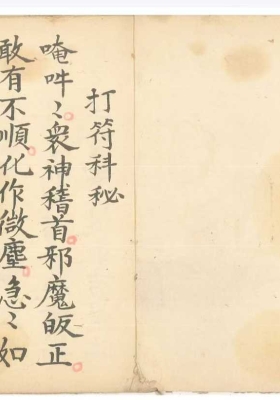 打符科秘
唵吽〻衆神稽首邪魔皈正
敢有不順化作微塵急〻如